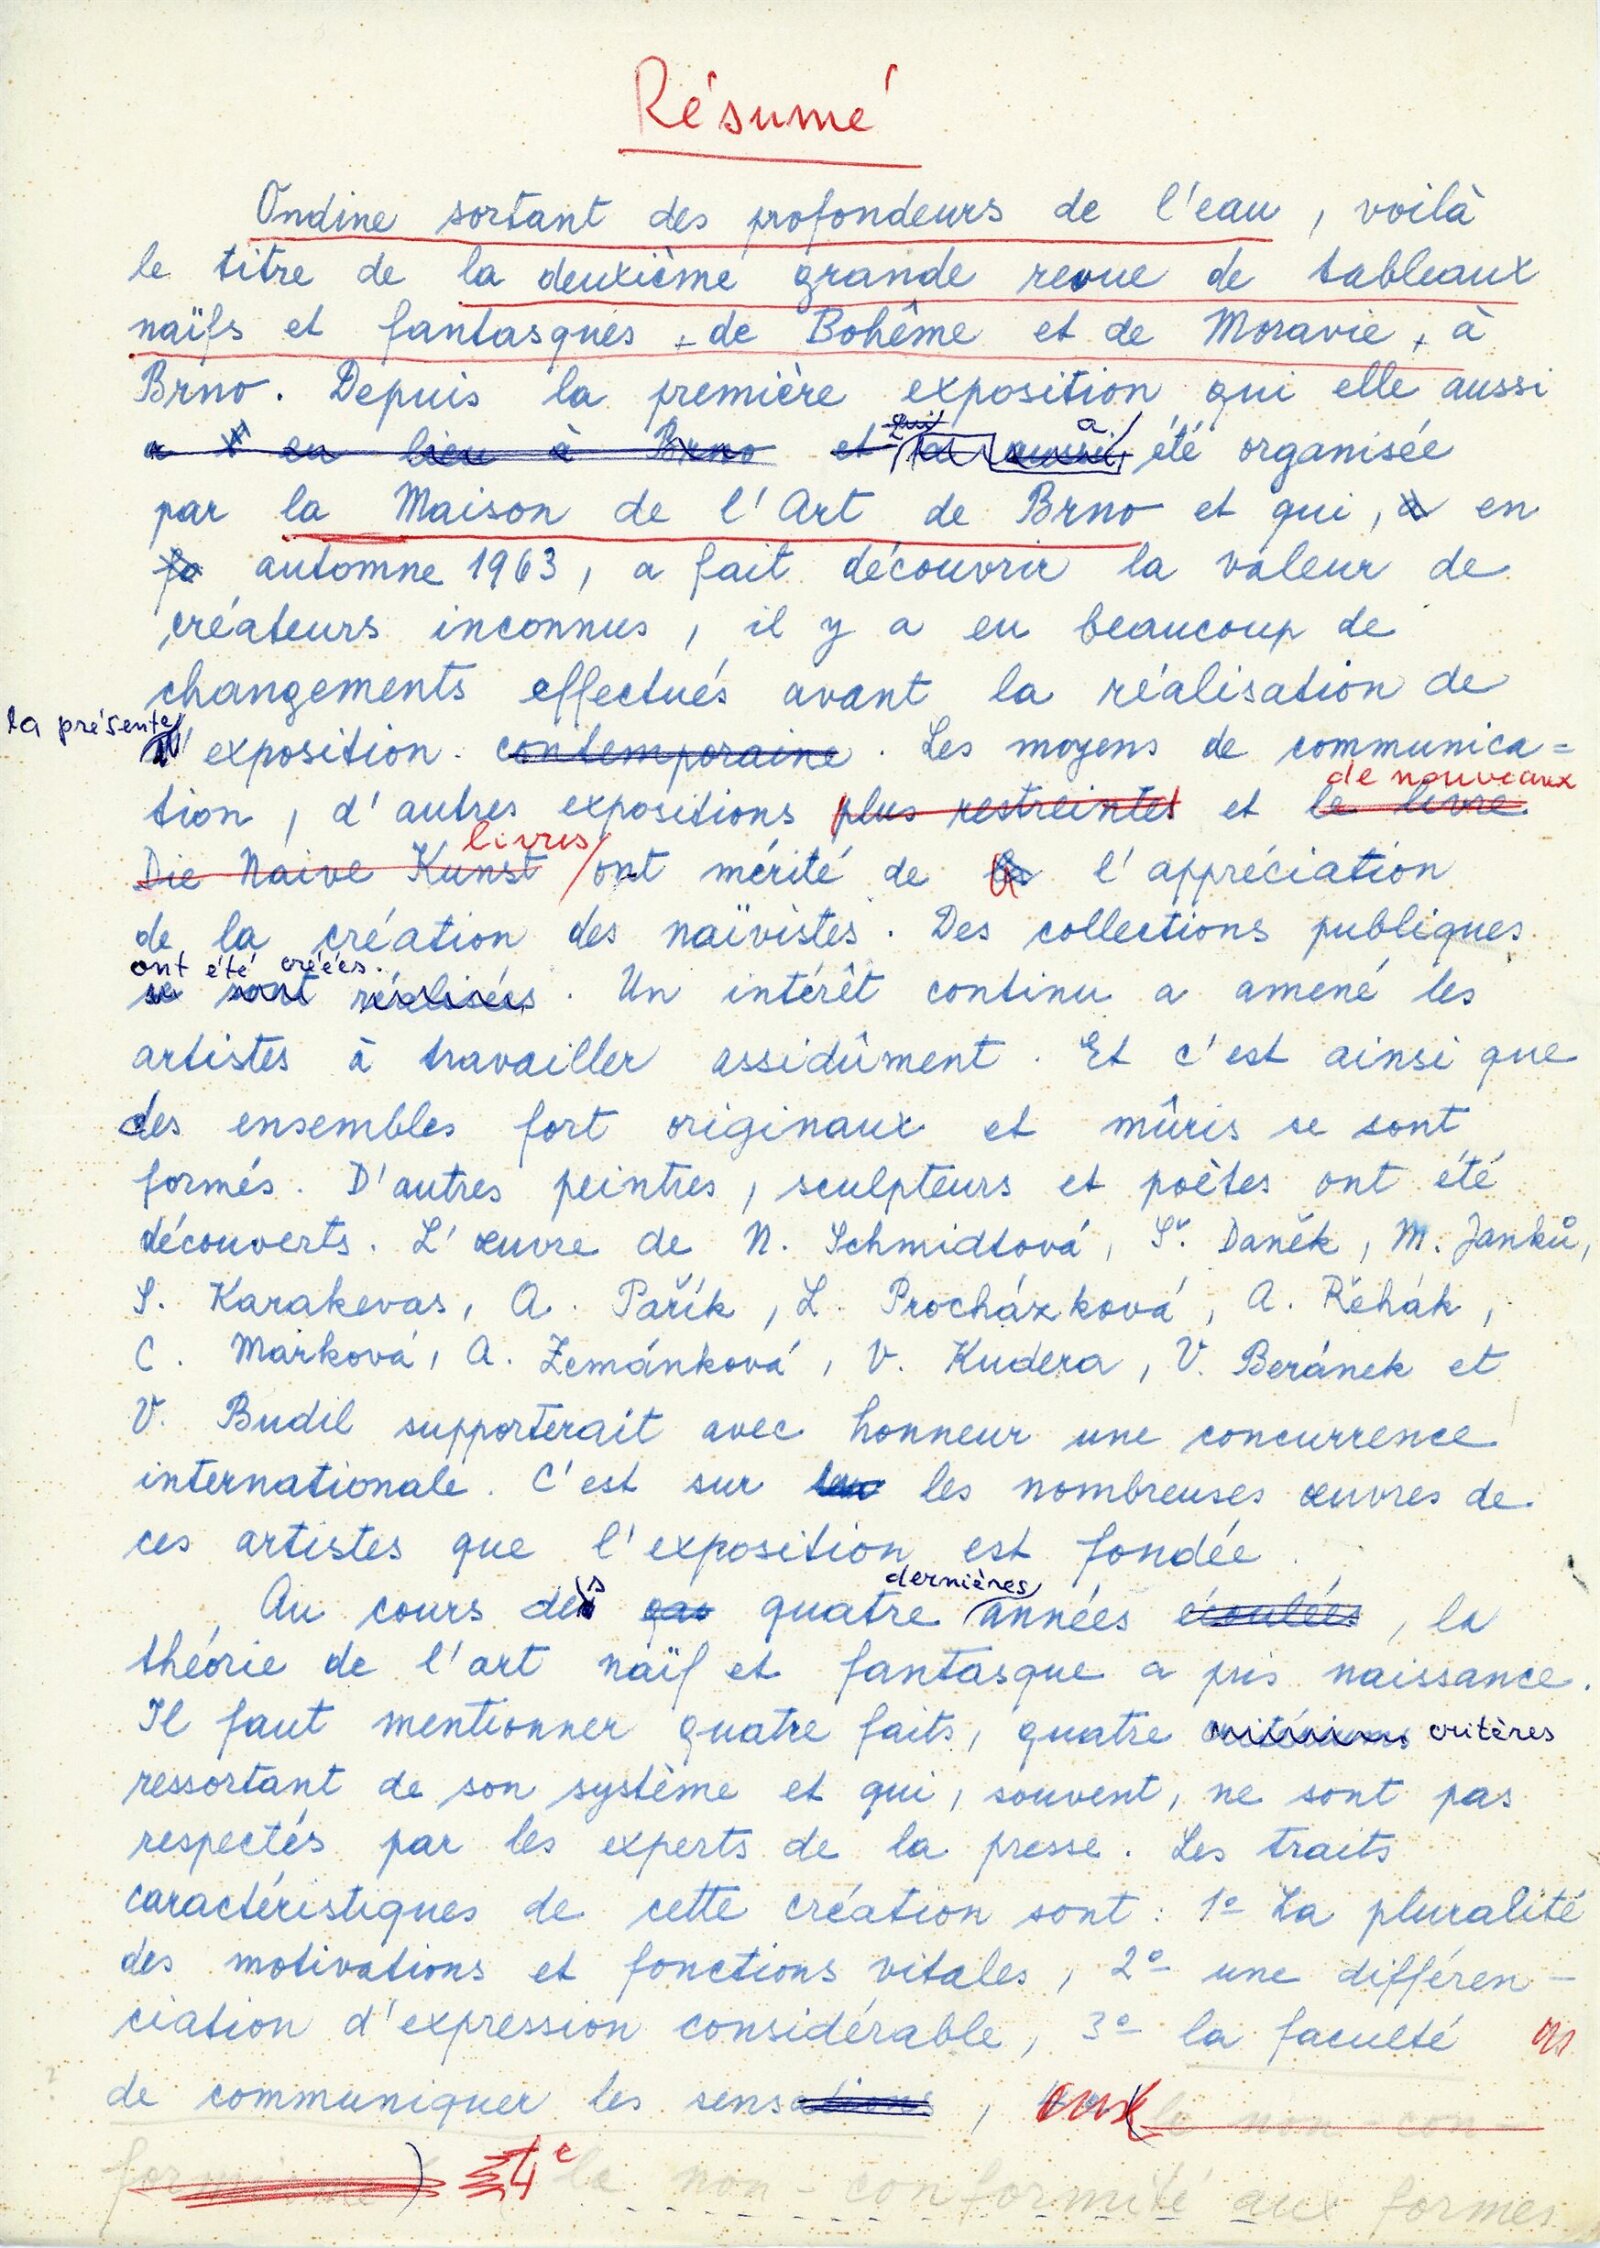 Résumé
Ondine sortant des profondeurs de l'eau, voilà
le titre de la deuxième grande revue de tableaux
naïfs et fantasques, de Bohême et de Moravie, à
Brno. Depuis la première exposition qui elle aussi
a en lieu à Brno et qui aussi a été organisée
par la Maison de l'Art de Brno et qui, en
automne 1963, a fait découvrir la valeur de
créateurs inconnus, il y a eu beaucoup de
changements effectués avant la réalisation de
la présente
exposition contemporaine. Les moyens de communica=
de nouveaux
tion, d'autres expositions plus restreintes et le livre
livres
Die Naive Kunst ont mérité de l'appréciation
de la création des naïvistes. Des collections publiques
ont été créées.
se sont réalisées. Un intérêt continu a amené les
artistes à travailler assidûment. Et c'est ainsi que
des ensembles fort originaux et mûris se sont
formés. D'autres peintres, sculpteurs et poètes ont été
découverts. L'œuvre de N. Schmidtová, S. Daněk, M. Janků,
S. Karakevas, A. Pařík, L. Procházková, A. Řehák,
C. Marková, A. Zemánková, V. Kudera, V. Beránek et
V. Budil supporterait avec honneur une concurrence
internationale. C'est sur les nombreuses œuvres de
ces artistes que l'exposition est fondée.
dernières
Au cours des quatre années écoulées, la
théorie de l'art naïf et fantasque a pris naissance.
Il faut mentionner quatre faits, quatre critères
ressortant de son système et qui, souvent, ne sont pas
respectés par les experts de la presse. Les traits
caractéristiques de cette création sont: 1º La pluralité
des motivations et fonctions vitales, 2º une différen-
ciation d'expression considérable, 3º la faculté
de communiquer les sensations, le non-con-
formisme) 4e la non-conformité aux formes